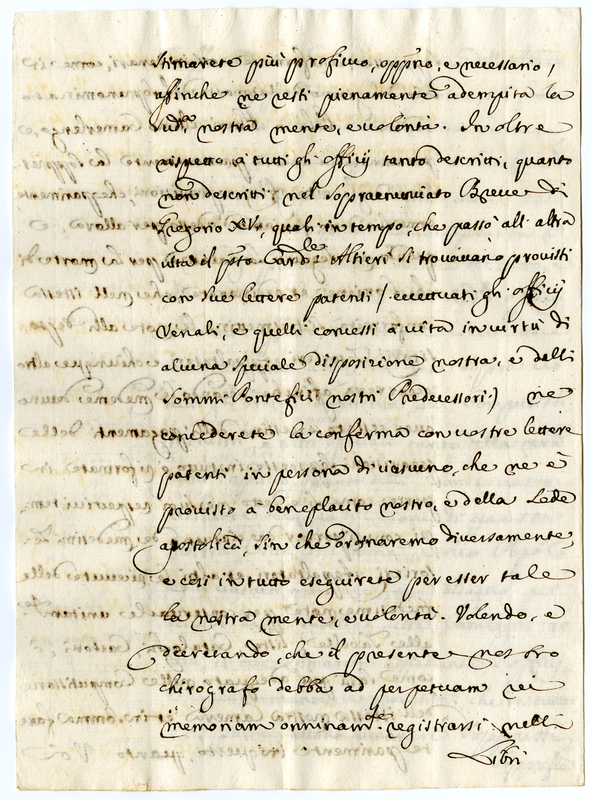 stimarete più proficuo, opp.no, e necessario,
affinche ne resti pienamente adempita la
sud.a nostra mente, e volontà. In oltre
rispetto à tutti gli officij tanto descritti, quanto
non descritti nel sopraenunciato Breve di
Gregorio XV, quali in tempo, che passò all'altra
vita il p.to Card.le Altieri si trovavano provisti
con sue lettere patenti /. eccettuati gli officij
Venali, e quelli concessi à vita in virtù di
alcuna speciale disposizione nostra, e delli
Sommi Pontefici nostri Predecessori .) ne
concederete la conferma con vostre lettere
patenti in persona di ciascuno, che ne è
provisto à beneplacito nostro, e della Sede
Apostolica, sin che ordinaremo diversamente,
e così in tutto eseguirete per esser tale
la nostra mente, e volontà. Volendo, e
decretando, che il presente nostro
chirografo debba ad perpetuam rei
memoriam onninam.te registrarsi nelli
Libri